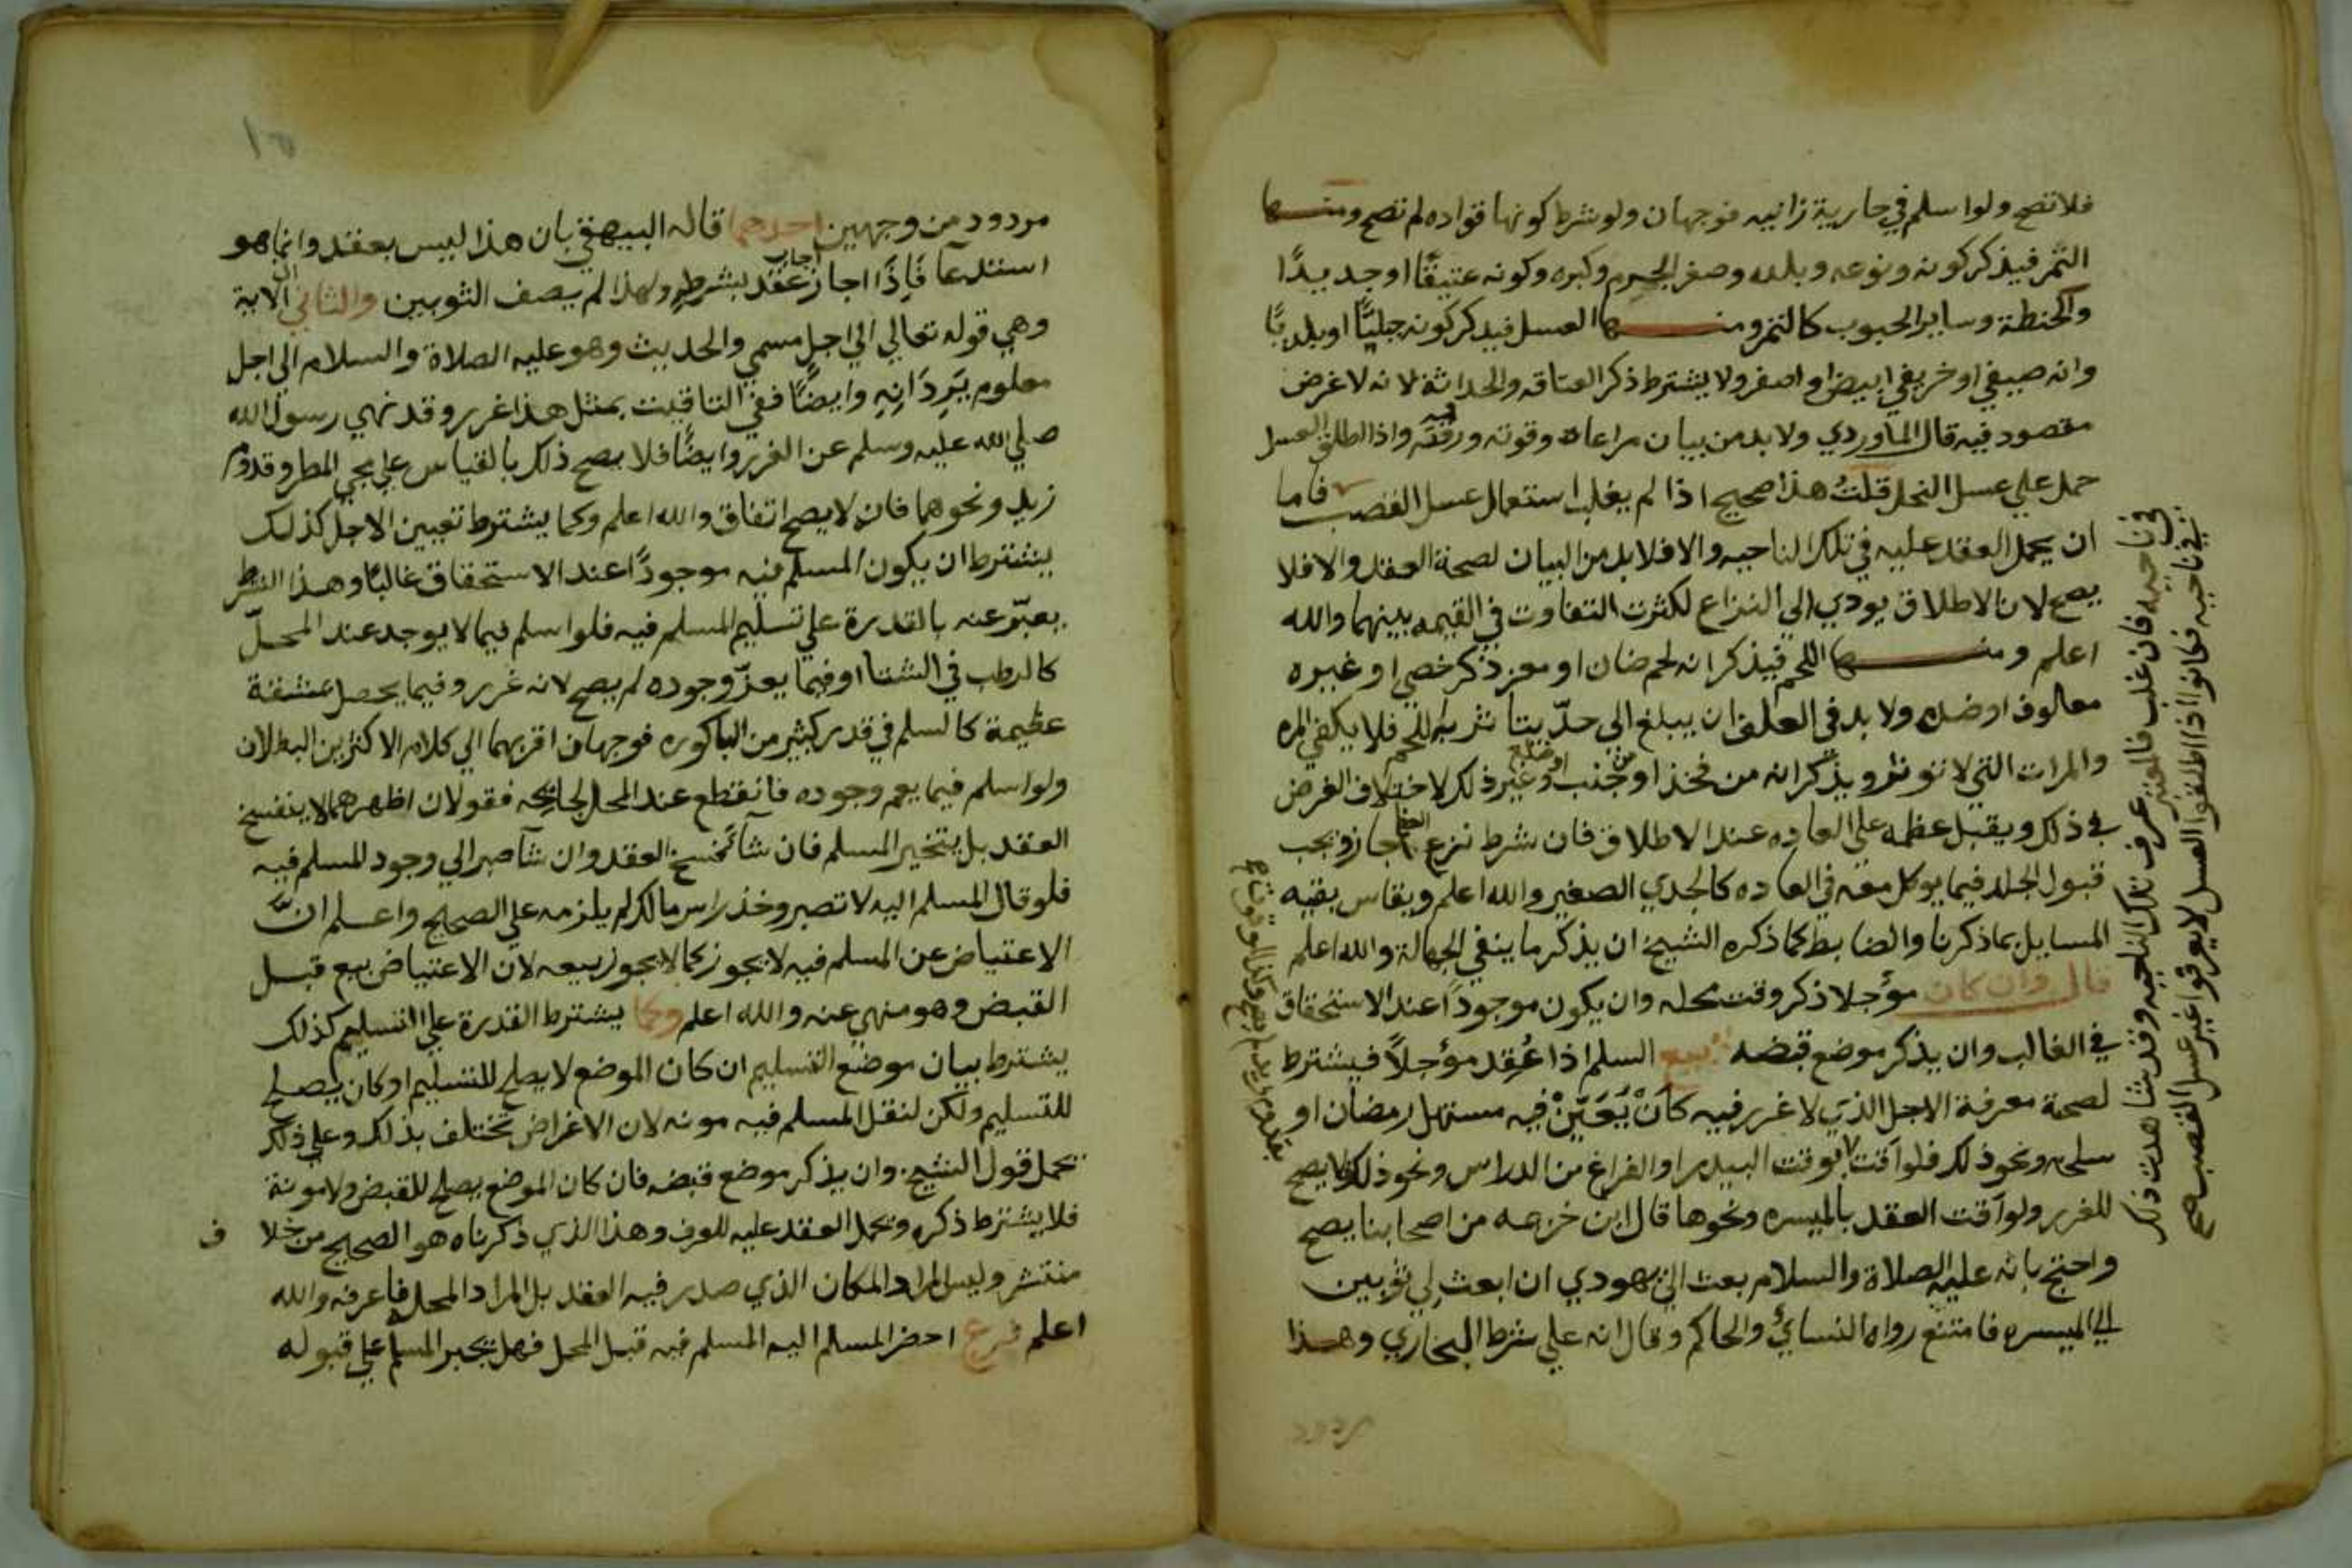 فلا تصح ولو اسلم في جارية زانيه فوجهان ولو شرط كونها قواده لم تصح ومنها
التمر فيذكر كونه ونوعه وبلده وصغر الجرم وكبره وكونه عتيقًا او جديدًا
والحنطة وساير الحبوب كالتمر ومنها العسل فيذكر كونه جبليًّا او بلديًّا
وانه صيفي او خريفي ابيض او اصفر ولا يشترط ذكر العتاقه والحداثة لانه لا غرض
مقصود فيه قال الماوردي ولا بد من بيان مراعاه وقوته ورقته واذا اطلق العسل
حمل علي عسل النحل قلتُ هذا صحيح اذا لم يغلب استعمال عسل القصب فاما
ان يحمل العقد عليه في تلك الناحيه والا فلا بد من البيان لصحة العقد والا فلا
يصح لان الاطلاق يودي الي النزاع لكثرت التفاوت في القيمه بينهما والله
اعلم ومنها اللحم فيذكر انه لحم ضان او معز ذكر خصي او غيره
معلوف او ضده ولا بد في العلف ان يبلغ الي حدّ يتاثر به اللحم فلا يكفي المره
والمرات التي لا توثر ويذكر انه من فخذ او من جنب او ضلع وغير ذلك لاختلاف الغرض
في ذلك ويقبل عظمه علي العاده عند الاطلاق فان شرط نزع العظم جاز ويجب
قبول الجلد فيما يوكل معه في العاده كالجدي الصغير والله اعلم ويقاس بقيه
المسايل بما ذكرنا والضابط كما ذكره الشيخ ان يذكر ما ينفي الجهالة والله اعلم
قال وان كان مؤجلا ذكر وقت محله وان يكون موجودًا عند الاستحقاق
في الغالب وان يذكر موضع قبضه بيع السلم اذا عُقِد مؤجلًا فيشترط
لصحة معرفة الاجل الذي لا غرر فيه كأنْ يُعَيِّنْ فيه مستهل رمضان او
سلخه ونحو ذلك فلو اقت بوقت البيدر او الفراغ من الدراس ونحو ذلك لا يصح
للغرر ولو اقت العقد بالميسره ونحوها قال ابن خزيمه من اصحابنا يصح
واحتج بانه عليه الصلاة والسلام بعث الي يهودي ان ابعث لي ثوبين
الي الميسره فامتنع رواه النسائ والحاكم وقال انه علي شرط البخاري وهذا
في ناحيه فان غلب فالمعتبر عرف تلك الناحيه وقد شاهدت ذلك
في ناحيه فكانوا اذا اطلقوا العسل لا يعرفوا غير عسل القصب صح
مردود
مردود من وجهين احدهما قاله البيهقي بان هذا ليس بعقد وانما هو
استدعآ فَإِذَا اجاز عقد بشرطه ولهذا لم يصف الثوبين والثاني ان الاية
وهي قوله تعالي الي اجل مسمي والحديث وهو عليه الصلاة والسلام الي اجل
معلوم يَرِدَانِهِ وايضًا ففي التاقيت بمثل هذا غرر وقد نهي رسول الله
صلي الله عليه وسلم عن الغرر وايضًا فلا يصح ذلك بالقياس علي مجي المطر وقدوم
زيد ونحوهما فانه لا يصح اتفاق والله اعلم وكما يشترط تعيين الاجل كذلك
يشترط ان يكون المسلم فيه موجودًا عند الاستحقاق غالبًا وهذا الشرط
يعبّر عنه بالقدرة علي تسليم المسلم فيه فلو اسلم فيما لا يوجد عند المحلّ
كالرطب في الشتا او فيما يعزّ وجوده لم يصح لانه غرر وفيما يحصل بمشقة
عظيمة كالسلم في قدر كثير من الباكوره فوجهان اقربهما الي كلام الاكثرين البطلان
ولو اسلم فيما يعم وجوده فانقطع عند المحل لجايحه فقولان اظهرهما لا ينفسخ
العقد بل يتخير المسلم فان شآ فسخ العقد وان شآ صبر الي وجود المسلم فيه
فلو قال المسلم اليه لا تصبر وخذ راس مالك لم يلزمه علي الصحيح واعلم انَّ
الاعتياض عن المسلم فيه لا يجوز كما لا يجوز بيعه لان الاعتياض بيع قبل
القبض وهو منهي عنه والله اعلم وكما يشترط القدرة علي التسليم كذلك
يشترط بيان موضع التسليم ان كان الموضع لا يصلح للتسليم او كان يصلح
للتسليم ولكن لنقل المسلم فيه مونه لان الاغراض تختلف بذلك وعلي ذلك
تحمل قول الشيخ وان يذكر موضع قبضه فان كان الموضع يصلح للقبض ولا مونة
فلا يشترط ذكره ويحمل العقد عليه للعرف وهذا الذي ذكرناه هو الصحيح من خلاف
منتشر وليس المراد المكان الذي صدر فيه العقد بل المراد المحله فاعرفه والله
اعلم فرع احضر المسلم اليه المسلم فيه قبل المحل فهل يجبر المسلم علي قبوله